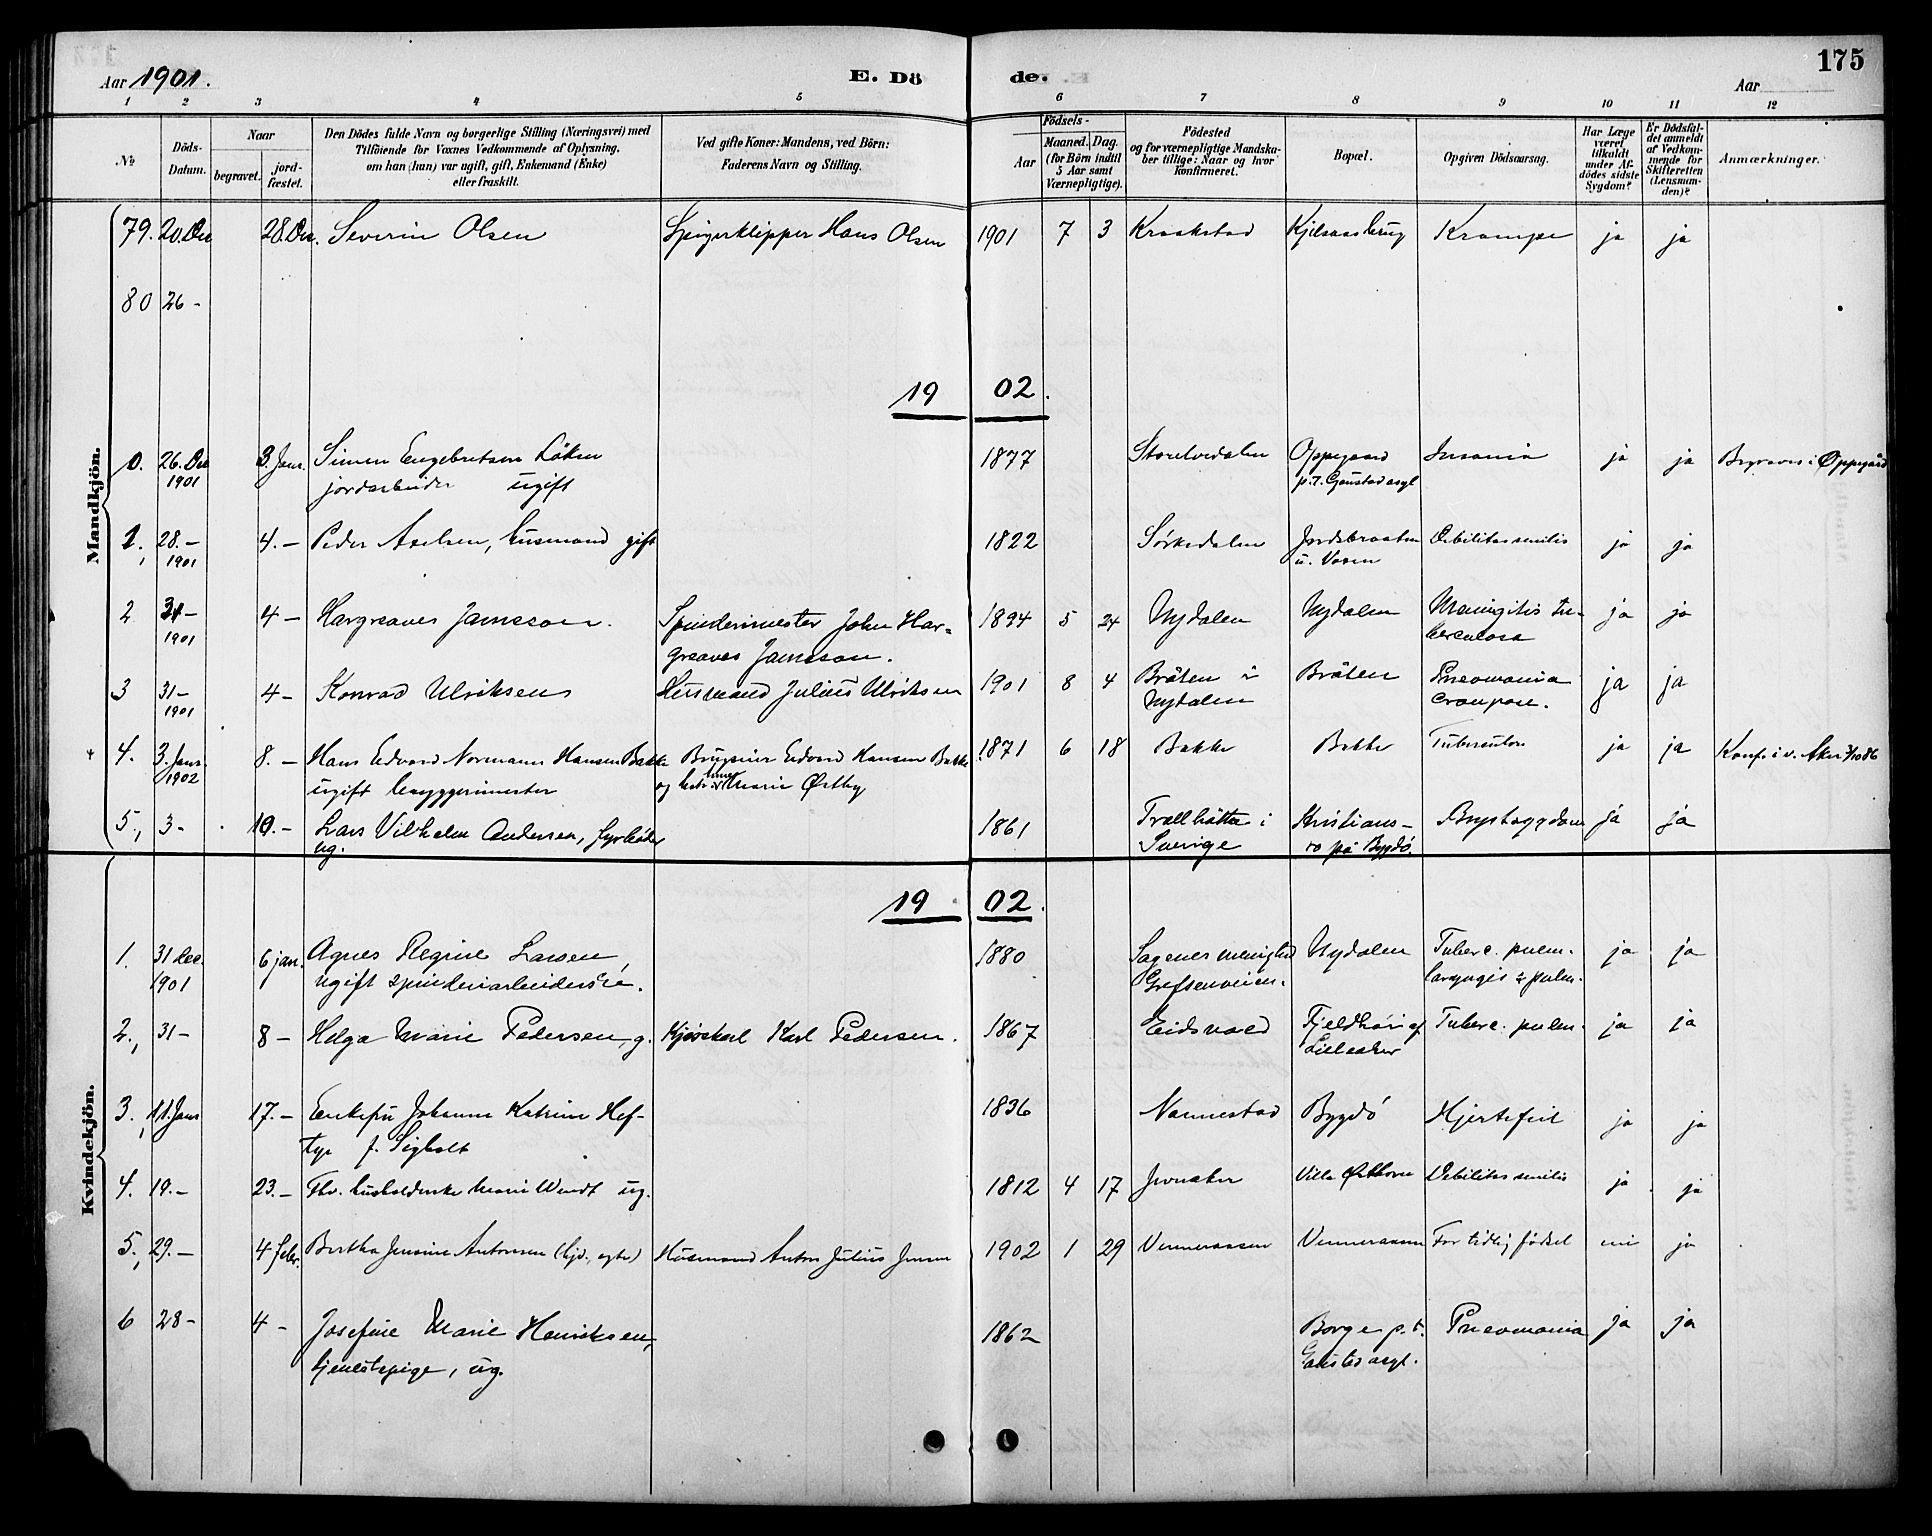 175
Aar 1901.
E. Dö de.
Aar
1 2 3 4 5 6 7 8 9 10 11 12
№
Döds-
Datum.
Naar
begravet.
jord-
fæstet.
Den Dödes fulde Navn og borgerlige Stilling (Næringsvei) med
Tilföiende for Voxnes Vedkommende af Oplysning,
om han (hun) var ugift, gift, Enkemand (Enke)
eller fraskilt.
Ved gifte Koner: Mandens, ved Börn:
Faderens Navn og Stilling.
Födsels-
Aar
Maaned. Dag.
(for Börn indtil
5 Aar samt
Værnepligtige).
Födested
og for værnepligtige Mandska-
ber tillige: Naar og hvor
konfirmeret.
Bopæl.
Opgiven Dödsaarsag.
Har Læge
været
tilkaldt
under Af-
dödes sidste
Sygdom?
Er Dödsfal-
det anmeldt
af Vedkom-
mende for
Skifteretten
(Lensman-
den)?
Anmærkninger.
Mandkjön.
79. 20. Dec 28. Dec. Severin Olsen Spigerklipper Hans Olsen 1901 7 3 Kraakstad Kjelsaasbrug Krampe ja ja
80 26 -
19 02.
0. 26. Dec 3. Jan. Simen Engebretsen Löken 1877 Oppegaard Insania ja ja Begraves i Oppegård
1901 jordarbeider ugift p.t. Gaustad asyl
1, 28. - 4. - Peder Axelsen, husmand gift 1822 Sørkedalen Debilitas senilis ja ja
1901
2 31 - 4 - Hargreaves Jamesson. Spindemester John Har- 1894 5 24 Nydalen Nydalen Meningitis tu- ja ja
1901 greaves Jamesson. berculosa
3 31 - 4 - Konrad Ulriksen Husmand Julius Ulriksen 1901 8 4 Bråten i Bråten Pneomonia ja ja
1901 Nydalen croupose.
4. 3. Jan. 8. - Hans Edvard Normann Hansen Bakke Brugseier Edvard Hansen Bakke 1871 6 18 Bakke Bakke Tuberculose ja ja Konf. i v. Aker 3/10 86
1902 ugift byggmester og Marie Østby
5, 3 - 10. - Lars Vilhelm Andersen, fyrbøder 1861 Trollhätta i Kristians- Brystsygdom ja ja
ug. Sverige ro på Bygdö.
Kvindekjön.
19 02.
1. 31 dec. 6 jan. Agnes Regine Larsen, 1880 Sagenes menighed Nydalen Tuberc. pulm. ja ja
1901 ugift spinderiarbeiderske. Grefsenveien. laryngis & pulm.
2, 31 - 8 - Helga Marie Pedersen, g. Kjørekarl Karl Pedersen. 1867 Eidsvold Tuberc. pulm. ja ja
Lilleaker
3, 11. Jan 17. - Enkefru Johanne Katrine Hef- 1836 Nannestad Bygdö Hjertefeil ja ja
tye f. Sigholt
4. 19. - 23. - Fhv. husholderske Marie Wendt ug. 1812 4 17 Jevnaker Villa Debilitas senilis ja ja
5, 29. - 4 Febr. Bertha Jensine Antonsen (hjd., egte) Husmand Anton Julius Jensen 1902 1 29 Venneraasen Venneraasen For tidlig födsel nei ja
6 28 - 4 - Josefine Marie Henriksen, 1862 Borge p.t. Pneomonia ja ja
tjenestepige, ug. Gaustad asyl.